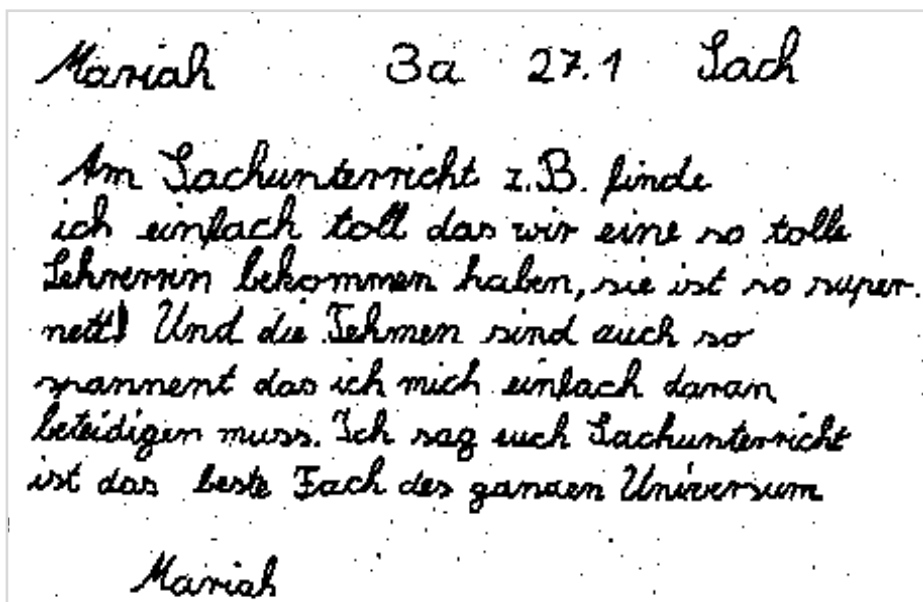 Mariah 3a 27.1 Sach
Am Sachunterricht z.B. finde
ich einfach toll das wir eine so tolle
Lehrerrin bekommen haben, sie ist so super.
nett! Und die Tehmen sind auch so
spannent das ich mich einfach daran
beteidigen muss. Ich sag euch Sachunterricht
ist das beste Fach des ganzen Universum
Mariah